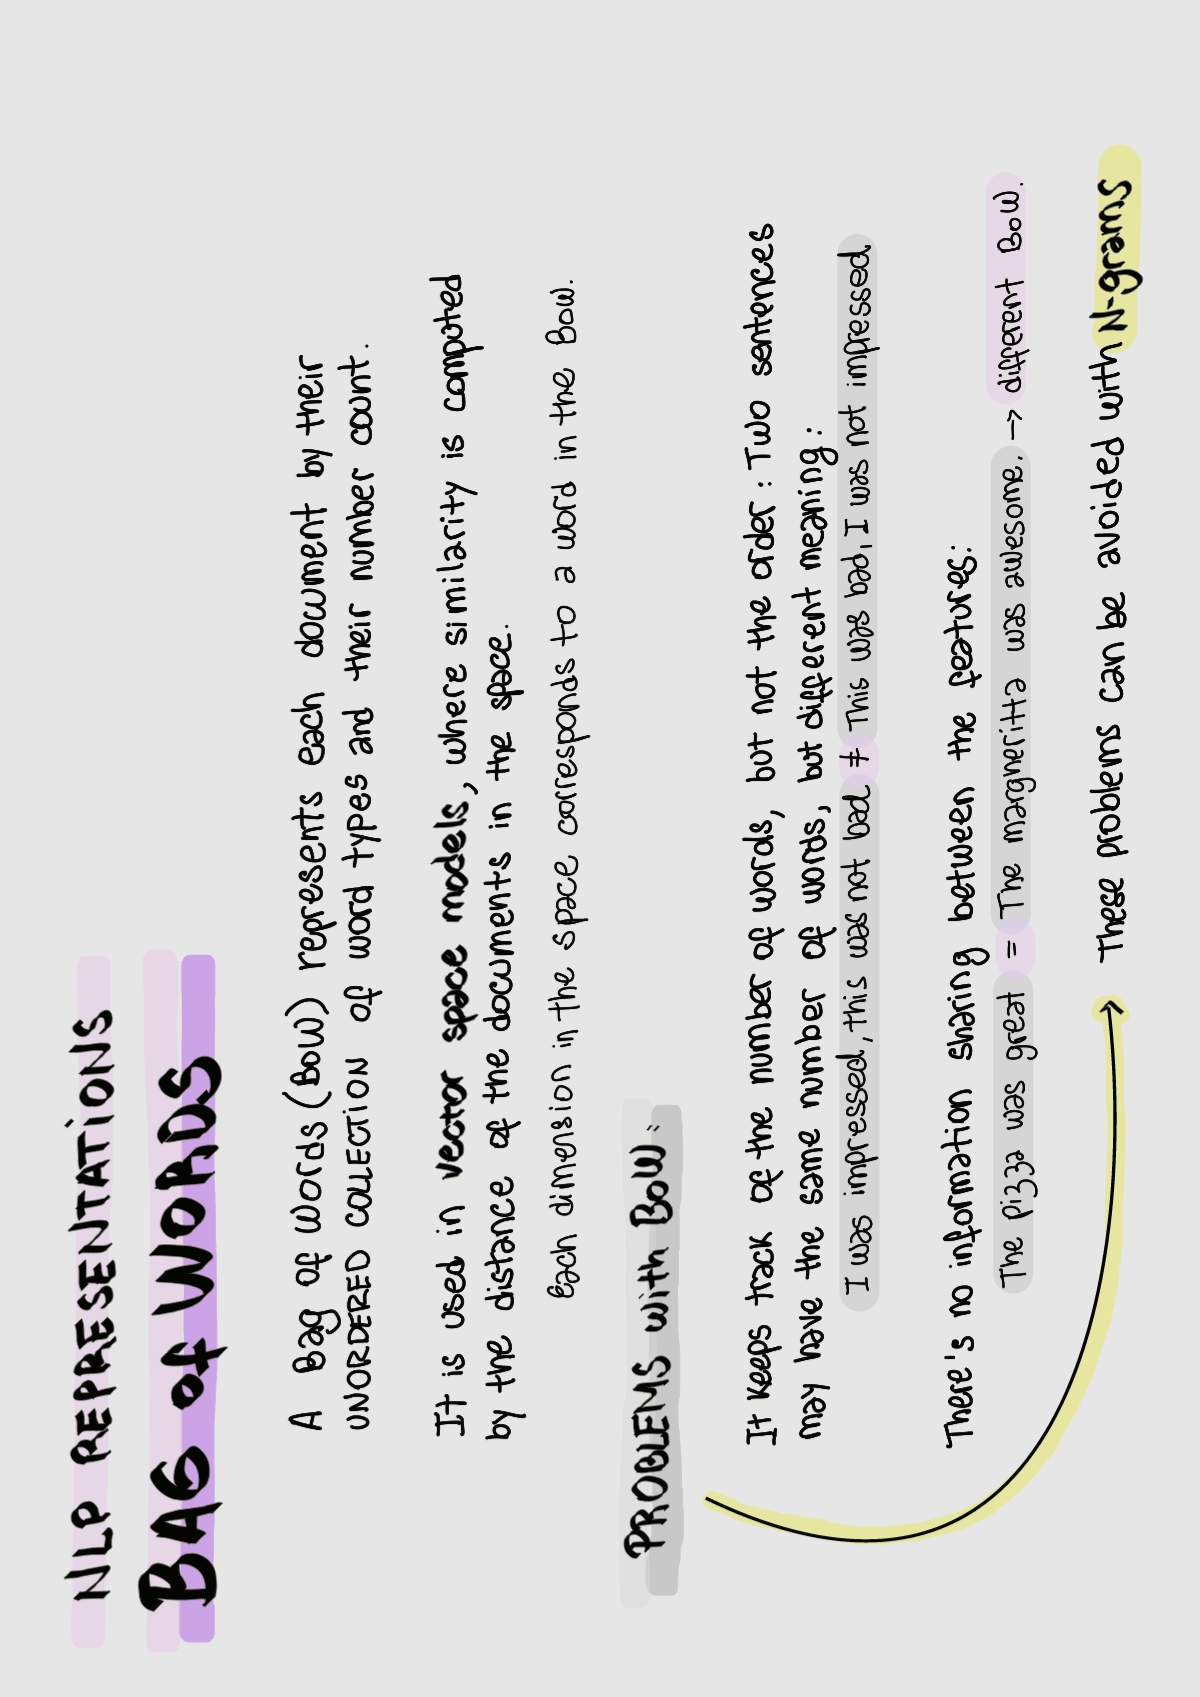 NLP REPRESENTATIONS
BAG of WORDS
A Bag of Words (BoW) represents each document by their
UNORDERED COLLECTION of word types and their number count.
It is used in vector space models, where similarity is computed
by the distance of the documents in the space.
Each dimension in the space corresponds to a word in the BoW.
PROBLEMS with BoW:
It keeps track of the number of words, but not the order: Two sentences
may have the same number of words, but different meaning:
I was impressed, this was not bad ≠ This was bad, I was not impressed
There's no information sharing between the features:
The pizza was great = The margneritta was awesome. → different BoW.
These problems can be avoided with N-grams